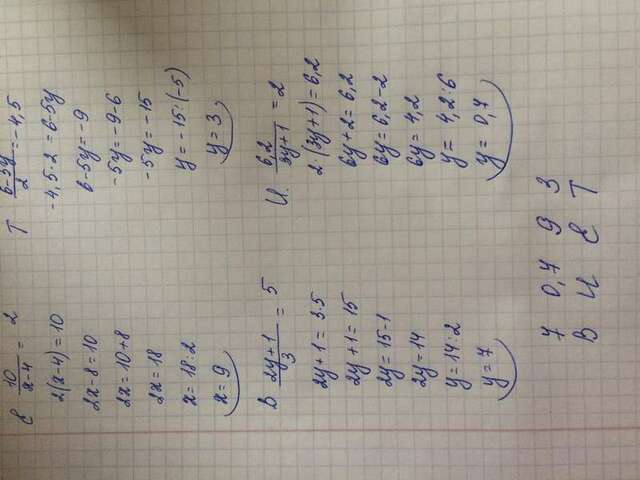 Е 10/(x-4) = 2
2(x-4) = 10
2x-8=10
2x=10+8
2x=18
x=18:2
x=9
Т (6-5y)/2 = -4,5
-4,5·2=6-5y
6-5y=-9
-5y=-9-6
-5y=-15
y=-15:(-5)
y=3
В (2y+1)/3 = 5
2y+1=3·5
2y+1=15
2y=15-1
2y=14
y=14:2
y=7
И. 6,2/(3y+1) = 2
2·(3y+1)=6,2
6y+2=6,2
6y=6,2-2
6y=4,2
y=4,2:6
y=0,7
7 0,7 9 3
В И Е Т